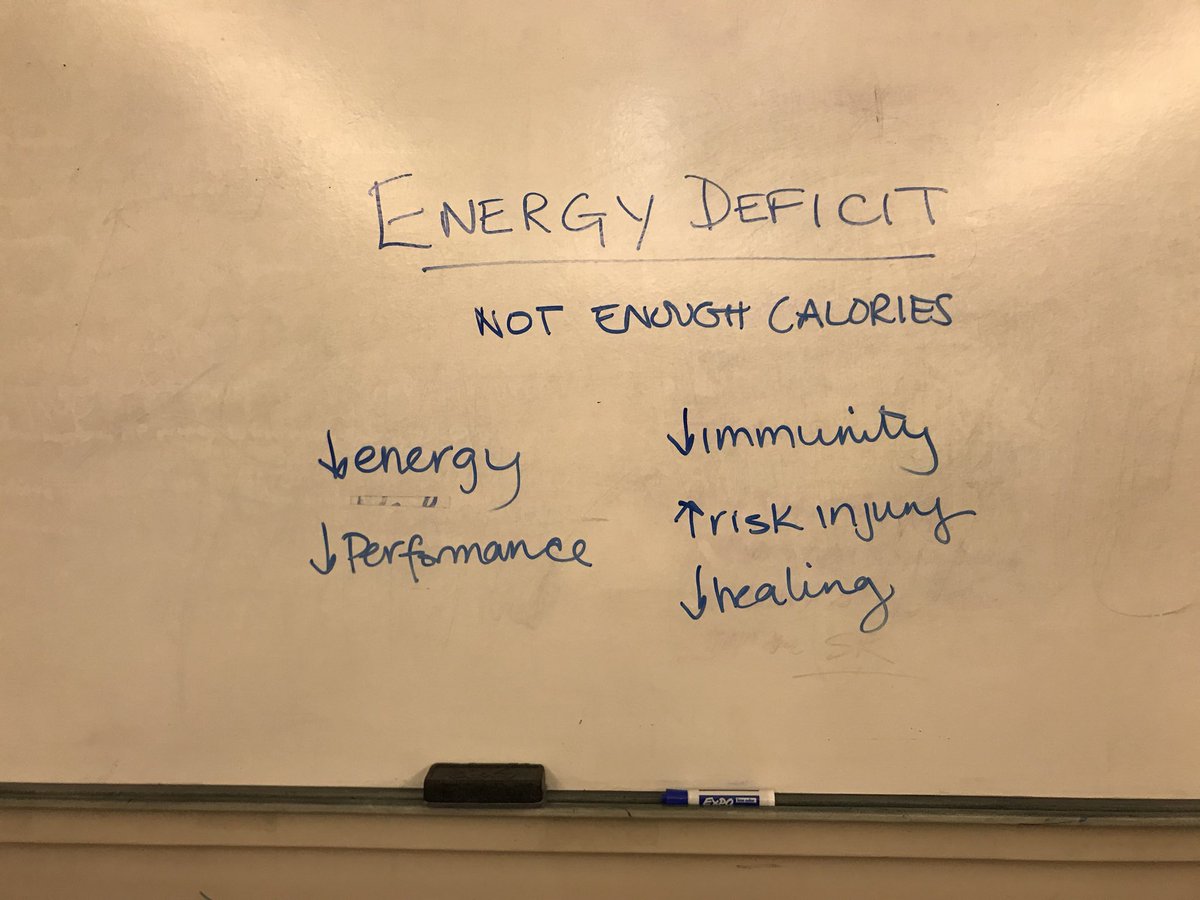 ENERGY DEFICIT
NOT ENOUGH CALORIES
↓energy
↓Performance
↓immunity
↑risk injury
↓healing
SK
EXPO